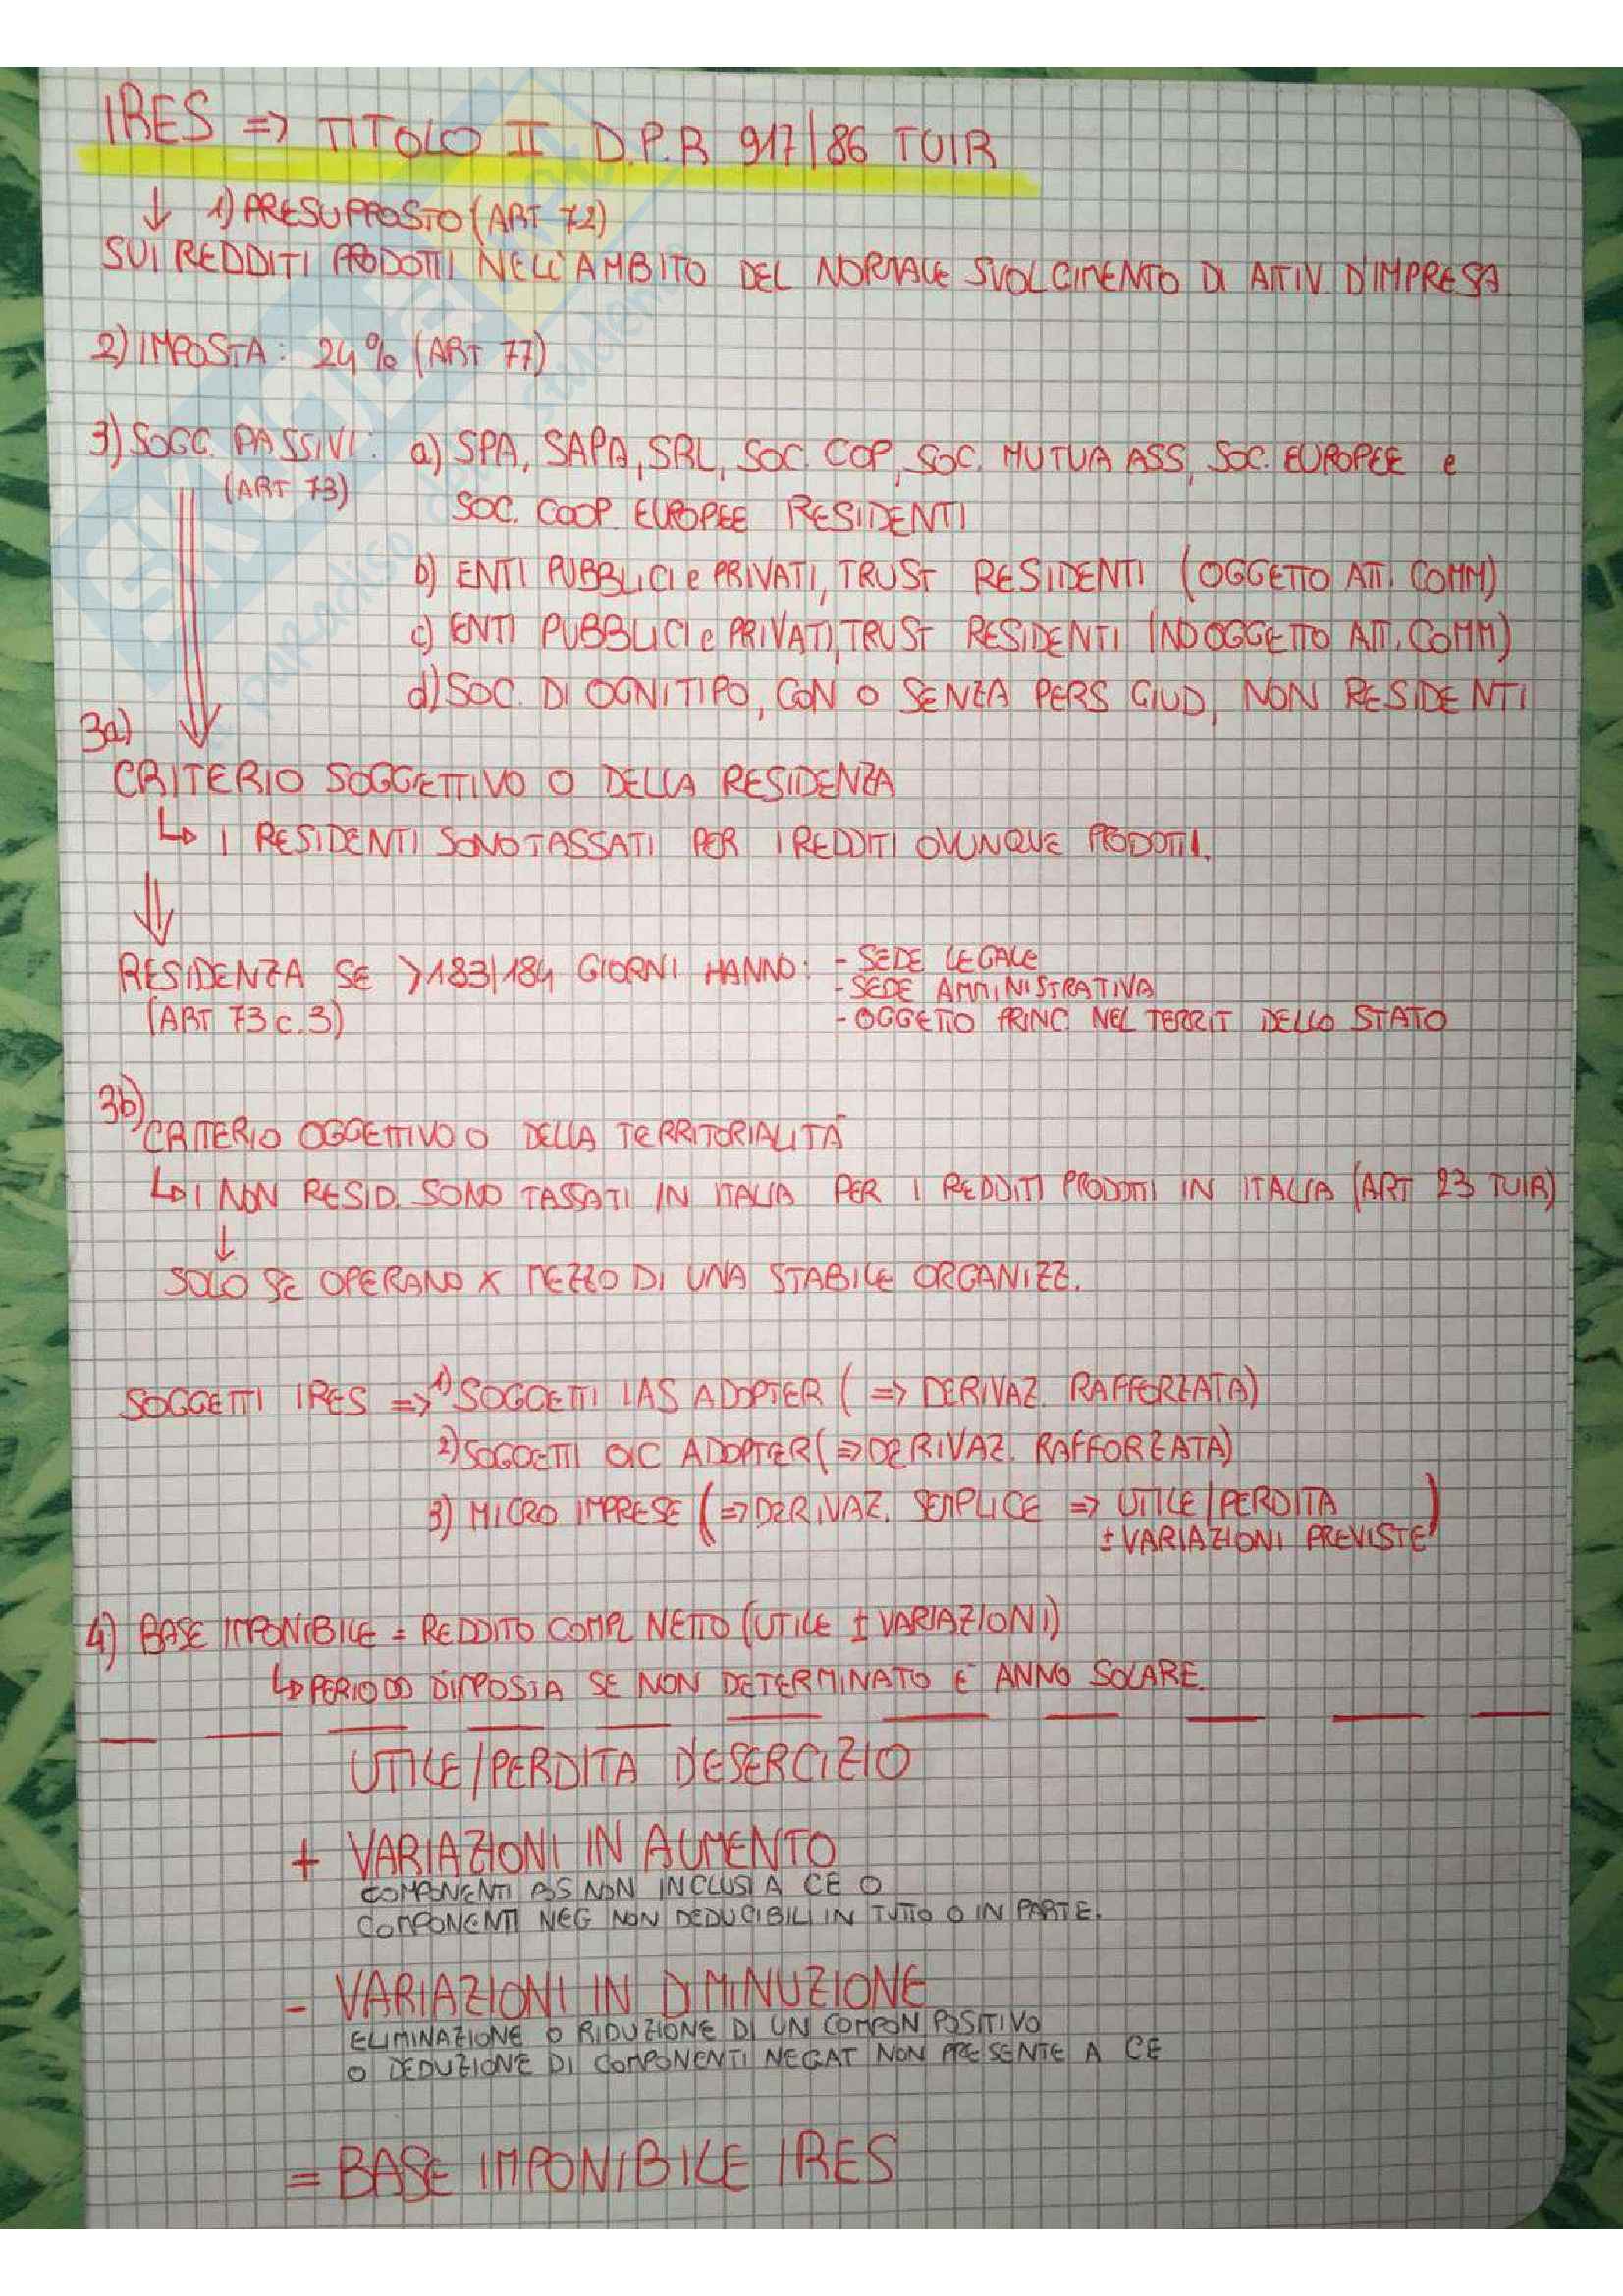 IRES => TITOLO II D.P.R 917/86 TUIR
↓ 1) PRESUPPOSTO (ART 72)
SUI REDDITI PRODOTTI NELL'AMBITO DEL NORMALE SVOLGIMENTO DI ATTIV. D'IMPRESA
2) IMPOSTA: 24% (ART 77)
3) SOGG. PASSIVI: a) SPA, SAPA, SRL, SOC. COP, SOC. MUTUA ASS, SOC. EUROPEE e
(ART 73) SOC. COOP. EUROPEE RESIDENTI
b) ENTI PUBBLICI e PRIVATI, TRUST RESIDENTI (OGGETTO ATT. COMM)
c) ENTI PUBBLICI e PRIVATI, TRUST RESIDENTI (NO OGGETTO ATT. COMM)
d) SOC. DI OGNI TIPO, CON O SENZA PERS GIUD, NON RESIDENTI
3a)
CRITERIO SOGGETTIVO O DELLA RESIDENZA
↳ I RESIDENTI SONO TASSATI PER I REDDITI OVUNQUE PRODOTTI.
RESIDENZA SE >183/184 GIORNI HANNO: - SEDE LEGALE
- SEDE AMMINISTRATIVA
(ART 73 c.3) - OGGETTO PRINC NEL TERRIT DELLO STATO
3b)
CRITERIO OGGETTIVO O DELLA TERRITORIALITÀ
↳ I NON RESID. SONO TASSATI IN ITALIA PER I REDDITI PRODOTTI IN ITALIA (ART 23 TUIR)
↓
SOLO SE OPERANO X MEZZO DI UNA STABILE ORGANIZZ.
SOGGETTI IRES => 1) SOGGETTI IAS ADOPTER (=> DERIVAZ. RAFFORZATA)
2) SOGGETTI OIC ADOPTER (=> DERIVAZ. RAFFORZATA)
3) MICRO IMPRESE (=> DERIVAZ. SEMPLICE => UTILE/PERDITA
± VARIAZIONI PREVISTE)
4) BASE IMPONIBILE = REDDITO COMPL NETTO (UTILE ± VARIAZIONI)
↳ PERIODO D'IMPOSTA SE NON DETERMINATO È ANNO SOLARE.
UTILE/PERDITA D'ESERCIZIO
+ VARIAZIONI IN AUMENTO
COMPONENTI POS NON INCLUSI A CE O
COMPONENTI NEG NON DEDUCIBILI IN TUTTO O IN PARTE.
- VARIAZIONI IN DIMINUZIONE
ELIMINAZIONE O RIDUZIONE DI UN COMPON POSITIVO
O DEDUZIONE DI COMPONENTI NEGAT NON PRESENTE A CE
= BASE IMPONIBILE IRES